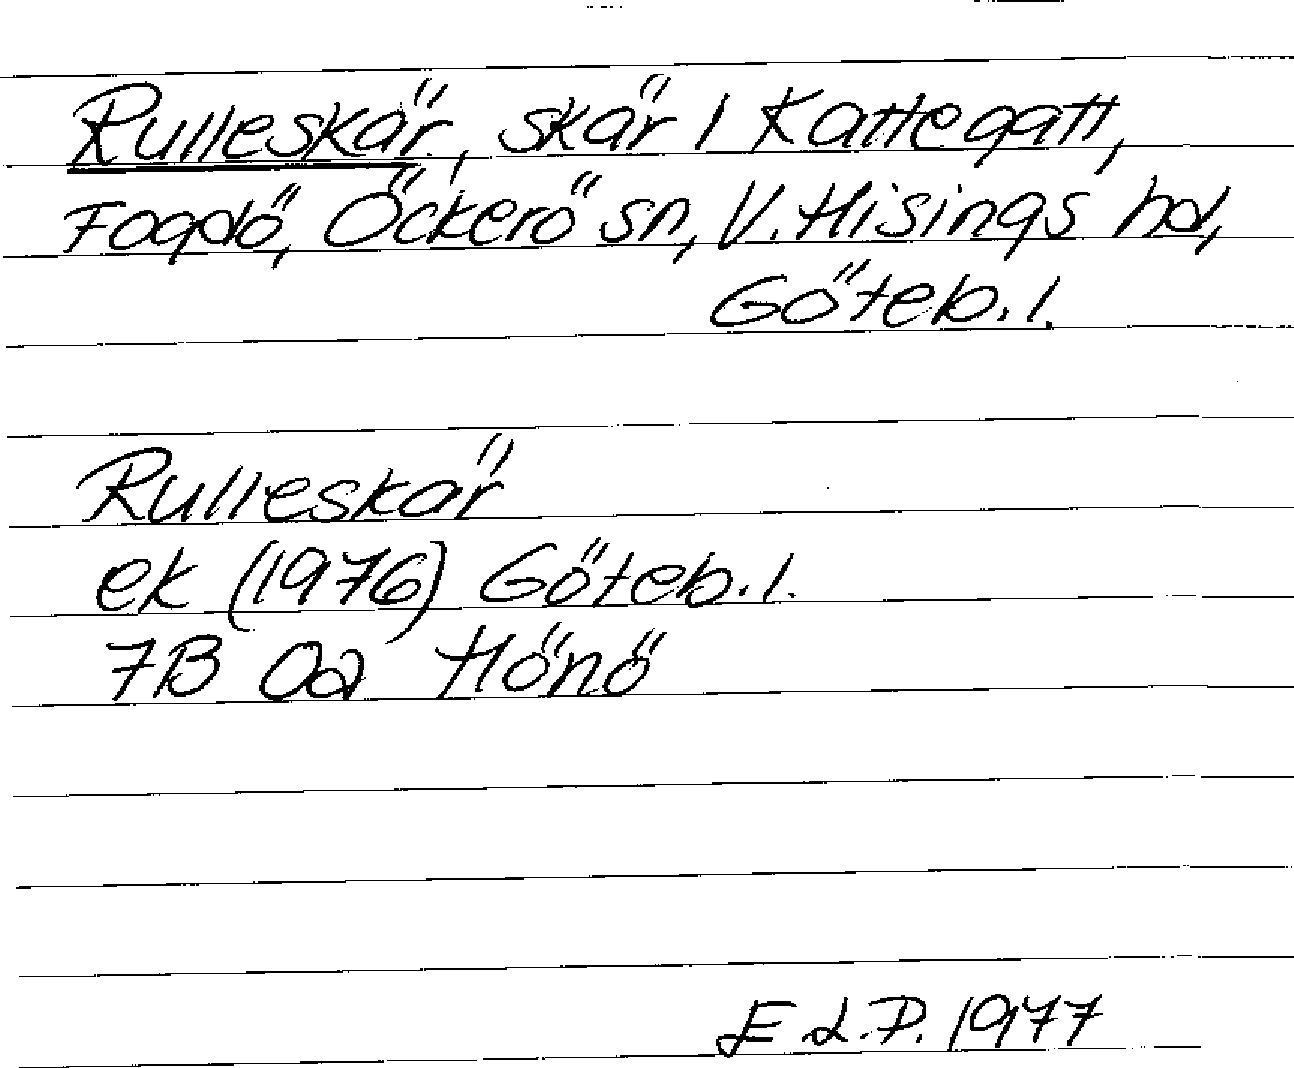 Rulleskär, skär i Kattegatt,
Fogdö, Öckerö sn, V. Hisings hd,
Göteb. l.
Rulleskär
ek (1976) Göteb. l.
7B 0a Hönö
E L.P. 1977